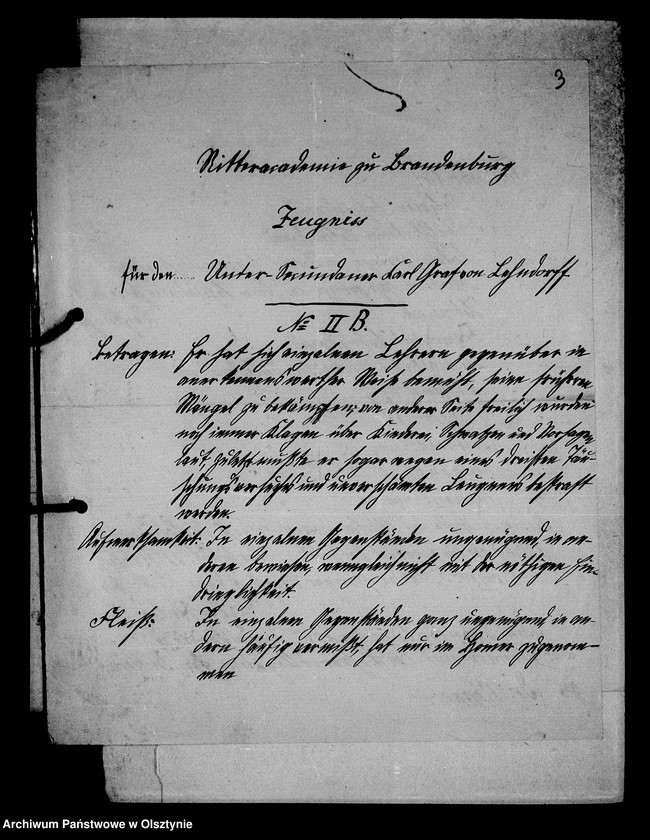 3
Ritteracademie zu Brandenburg
Zeugniss
für den Unter-Secundaner Karl Graf von Lehndorff
№ II B.
Betragen: Er hat sich einzelnen Lehrern gegenüber in
anerkennenswerther Weise bemüht, seine früheren
Mängel zu bekämpfen; von anderer Seite freilich wurden
noch immer Klagen über Kinderei, Schwatzen und Vorsagen
laut, zuletzt mußte er sogar wegen eines dreisten Täu-
schungsversuchs und unverschämten Leugnens bestraft
werden.
Aufmerksamkeit: In einzelnen Gegenständen ungenügend, in an-
deren bewiesen, wenngleich nicht mit der nöthigen Ein-
dringlichkeit.
Fleiß: In einzelnen Gegenständen ganz ungenügend, in an-
dern häufig vermißt, hat nur im Homer zugenom-
men
Archiwum Państwowe w Olsztynie